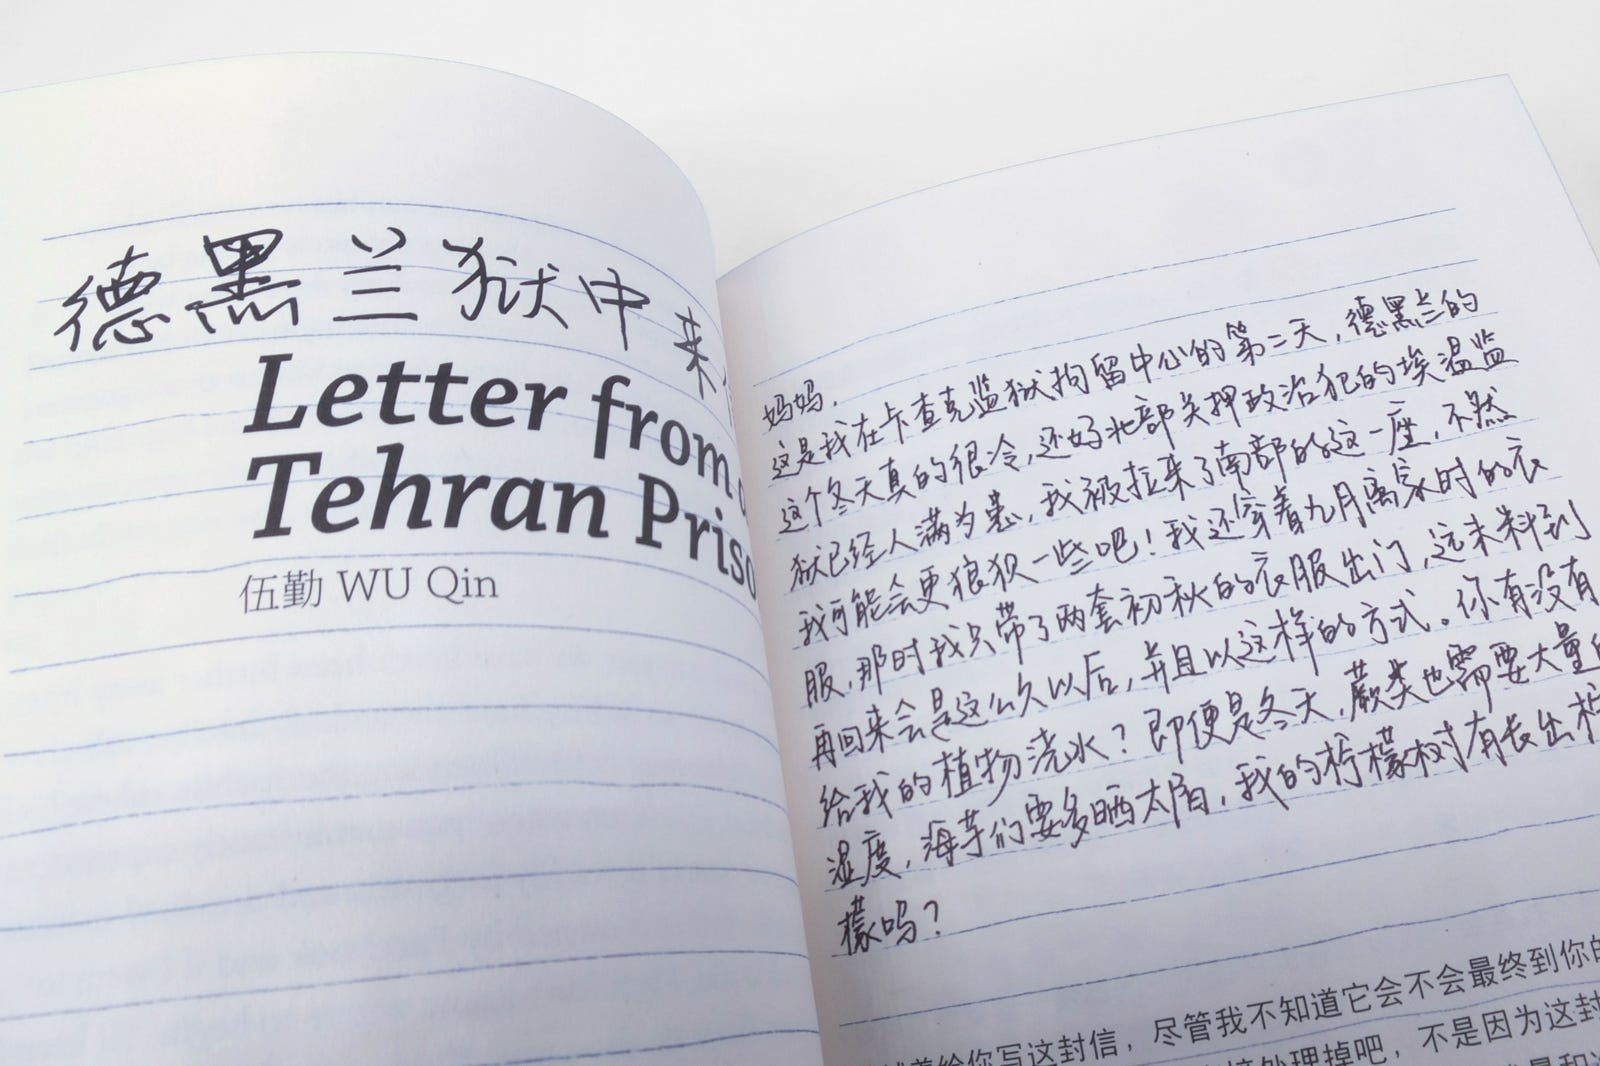 德黑兰狱中来
Letter from
Tehran Priso
伍勤 WU Qin
妈妈，
这是我在卡查克监狱拘留中心的第二天，德黑兰的
这个冬天真的很冷，还好北部关押政治犯的埃温监
狱已经人满为患，我被拉来了南部的这一座，不然
我可能会更狼狈一些吧！我还穿着九月离家时的衣
服，那时我只带了两套初秋的衣服出门，远未料到
再回来会是这么久以后，并且以这样的方式。你有没有
给我的植物浇水？即便是冬天，蕨类也需要大量的
湿度，海芋们要多晒太阳，我的柠檬树有长出柠
檬吗？
给你写这封信，尽管我不知道它会不会最终到你的
处理掉吧，不是因为这封